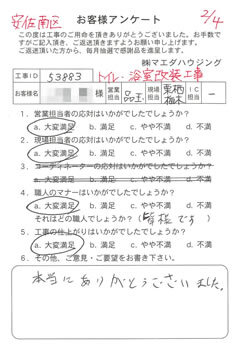 安佐南区 お客様アンケート 2/4
この度は工事のご用命を頂きありがとうございました。お手数で
すがご記入頂き、ご返送頂きますようお願い申し上げます。
ご返送頂いた方から、毎月抽選で感謝品を進呈します。
㈱マエダハウジング
工事ID 53883 トイレ・浴室改装工事
お客様名 様 営業担当 現場担当 IC担当 －
1．営業担当者の応対はいかがでしたでしょうか？
a. 大変満足 b. 満足 c. やや不満 d. 不満
2．現場担当者の応対はいかがでしたでしょうか？
a. 大変満足 b. 満足 c. やや不満 d. 不満
3．コーディネーターの応対はいかがでしたでしょうか？
a. 大変満足 b. 満足 c. やや不満 d. 不満
4．職人のマナーはいかがでしたでしょうか？
a. 大変満足 b. 満足 c. やや不満 d. 不満
それはどの職人でしょうか？（皆様です）
5．工事の仕上がりはいかがでしたでしょうか？
a. 大変満足 b. 満足 c. やや不満 d. 不満
6．その他、ご意見・ご要望をお書き下さい。
本当にありがとうございました。